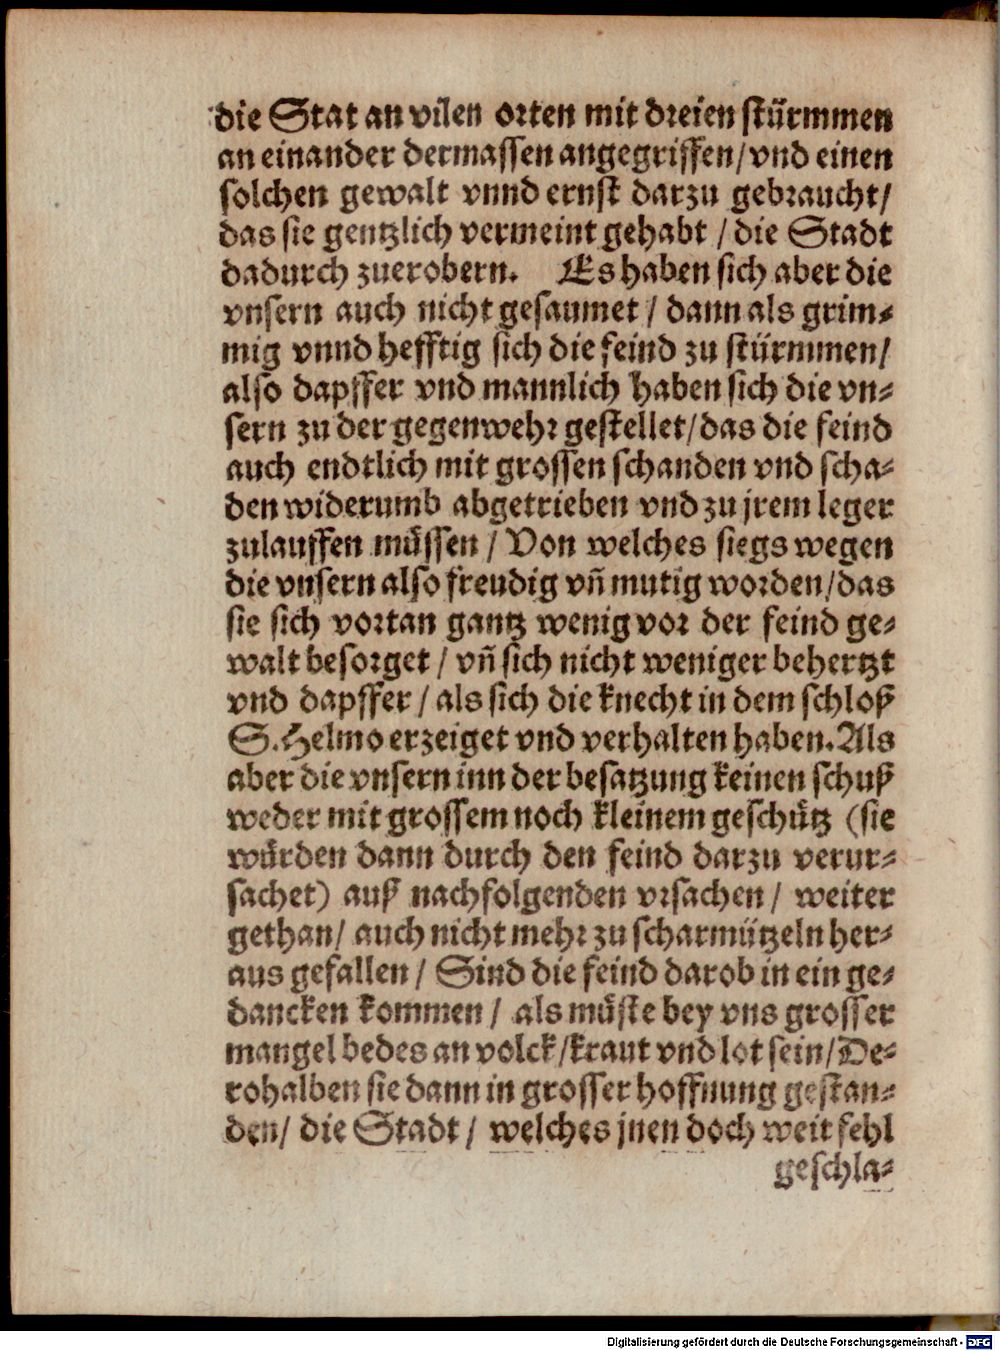 die Stat an vilen orten mit dreien stürmmen
an einander dermassen angegriffen/ vnd einen
solchen gewalt vnnd ernst darzu gebraucht/
das sie gentzlich vermeint gehabt / die Stadt
dadurch zuerobern. Es haben sich aber die
vnsern auch nicht gesaumet / dann als grim⸗
mig vnnd hefftig sich die feind zu stürmmen/
also dapffer vnd mannlich haben sich die vn⸗
sern zu der gegenwehr gestellet/ das die feind
auch endtlich mit grossen schanden vnd scha⸗
den widerumb abgetrieben vnd zu jrem leger
zulauffen müssen / Von welches siegs wegen
die vnsern also freudig vñ mutig worden/ das
sie sich vortan gantz wenig vor der feind ge⸗
walt besorget / vñ sich nicht weniger behertzt
vnd dapffer / als sich die knecht in dem schloß
S. Helmo erzeiget vnd verhalten haben. Als
aber die vnsern inn der besatzung keinen schuß
weder mit grossem noch kleinem geschütz (sie
würden dann durch den feind darzu verur⸗
sachet) auß nachfolgenden vrsachen / weiter
gethan/ auch nicht mehr zu scharmützeln her⸗
aus gefallen / Sind die feind darob in ein ge⸗
dancken kommen / als müste bey vns grosser
mangel bedes an volck/ kraut vnd lot sein/ De⸗
rohalben sie dann in grosser hoffnung gestan⸗
den/ die Stadt / welches jnen doch weit fehl
geschla⸗
Digitalisierung gefördert durch die Deutsche Forschungsgemeinschaft - DFG